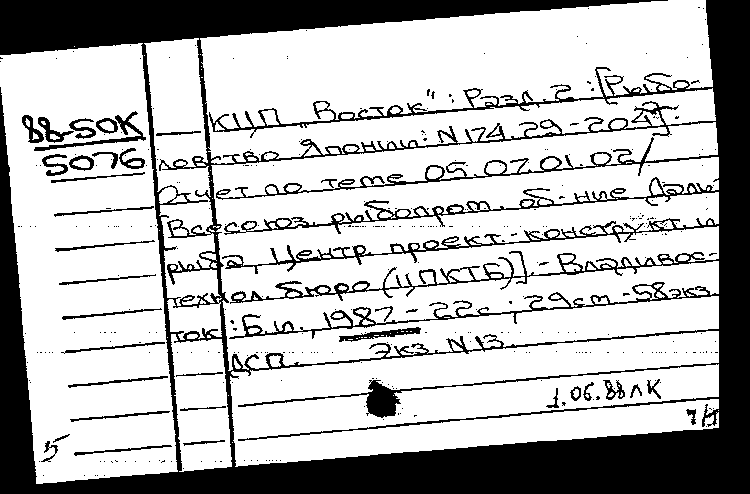 88-50К
5076
КЦП „Восток": Разд. 2 : [Рыбо-
ловство Японии: N174.29-204]:
Отчет по теме 05.07.01.02/
Всесоюз. рыбопром. об-ние Даль-
рыба, Центр. проект.-конструкт. и
технол. бюро (ЦПКТБ)].- Владивос-
ток: Б.и., 1987.- 22с ; 29см -58экз.
ДСП. Экз. N13.
1.06.88 ЛК
5